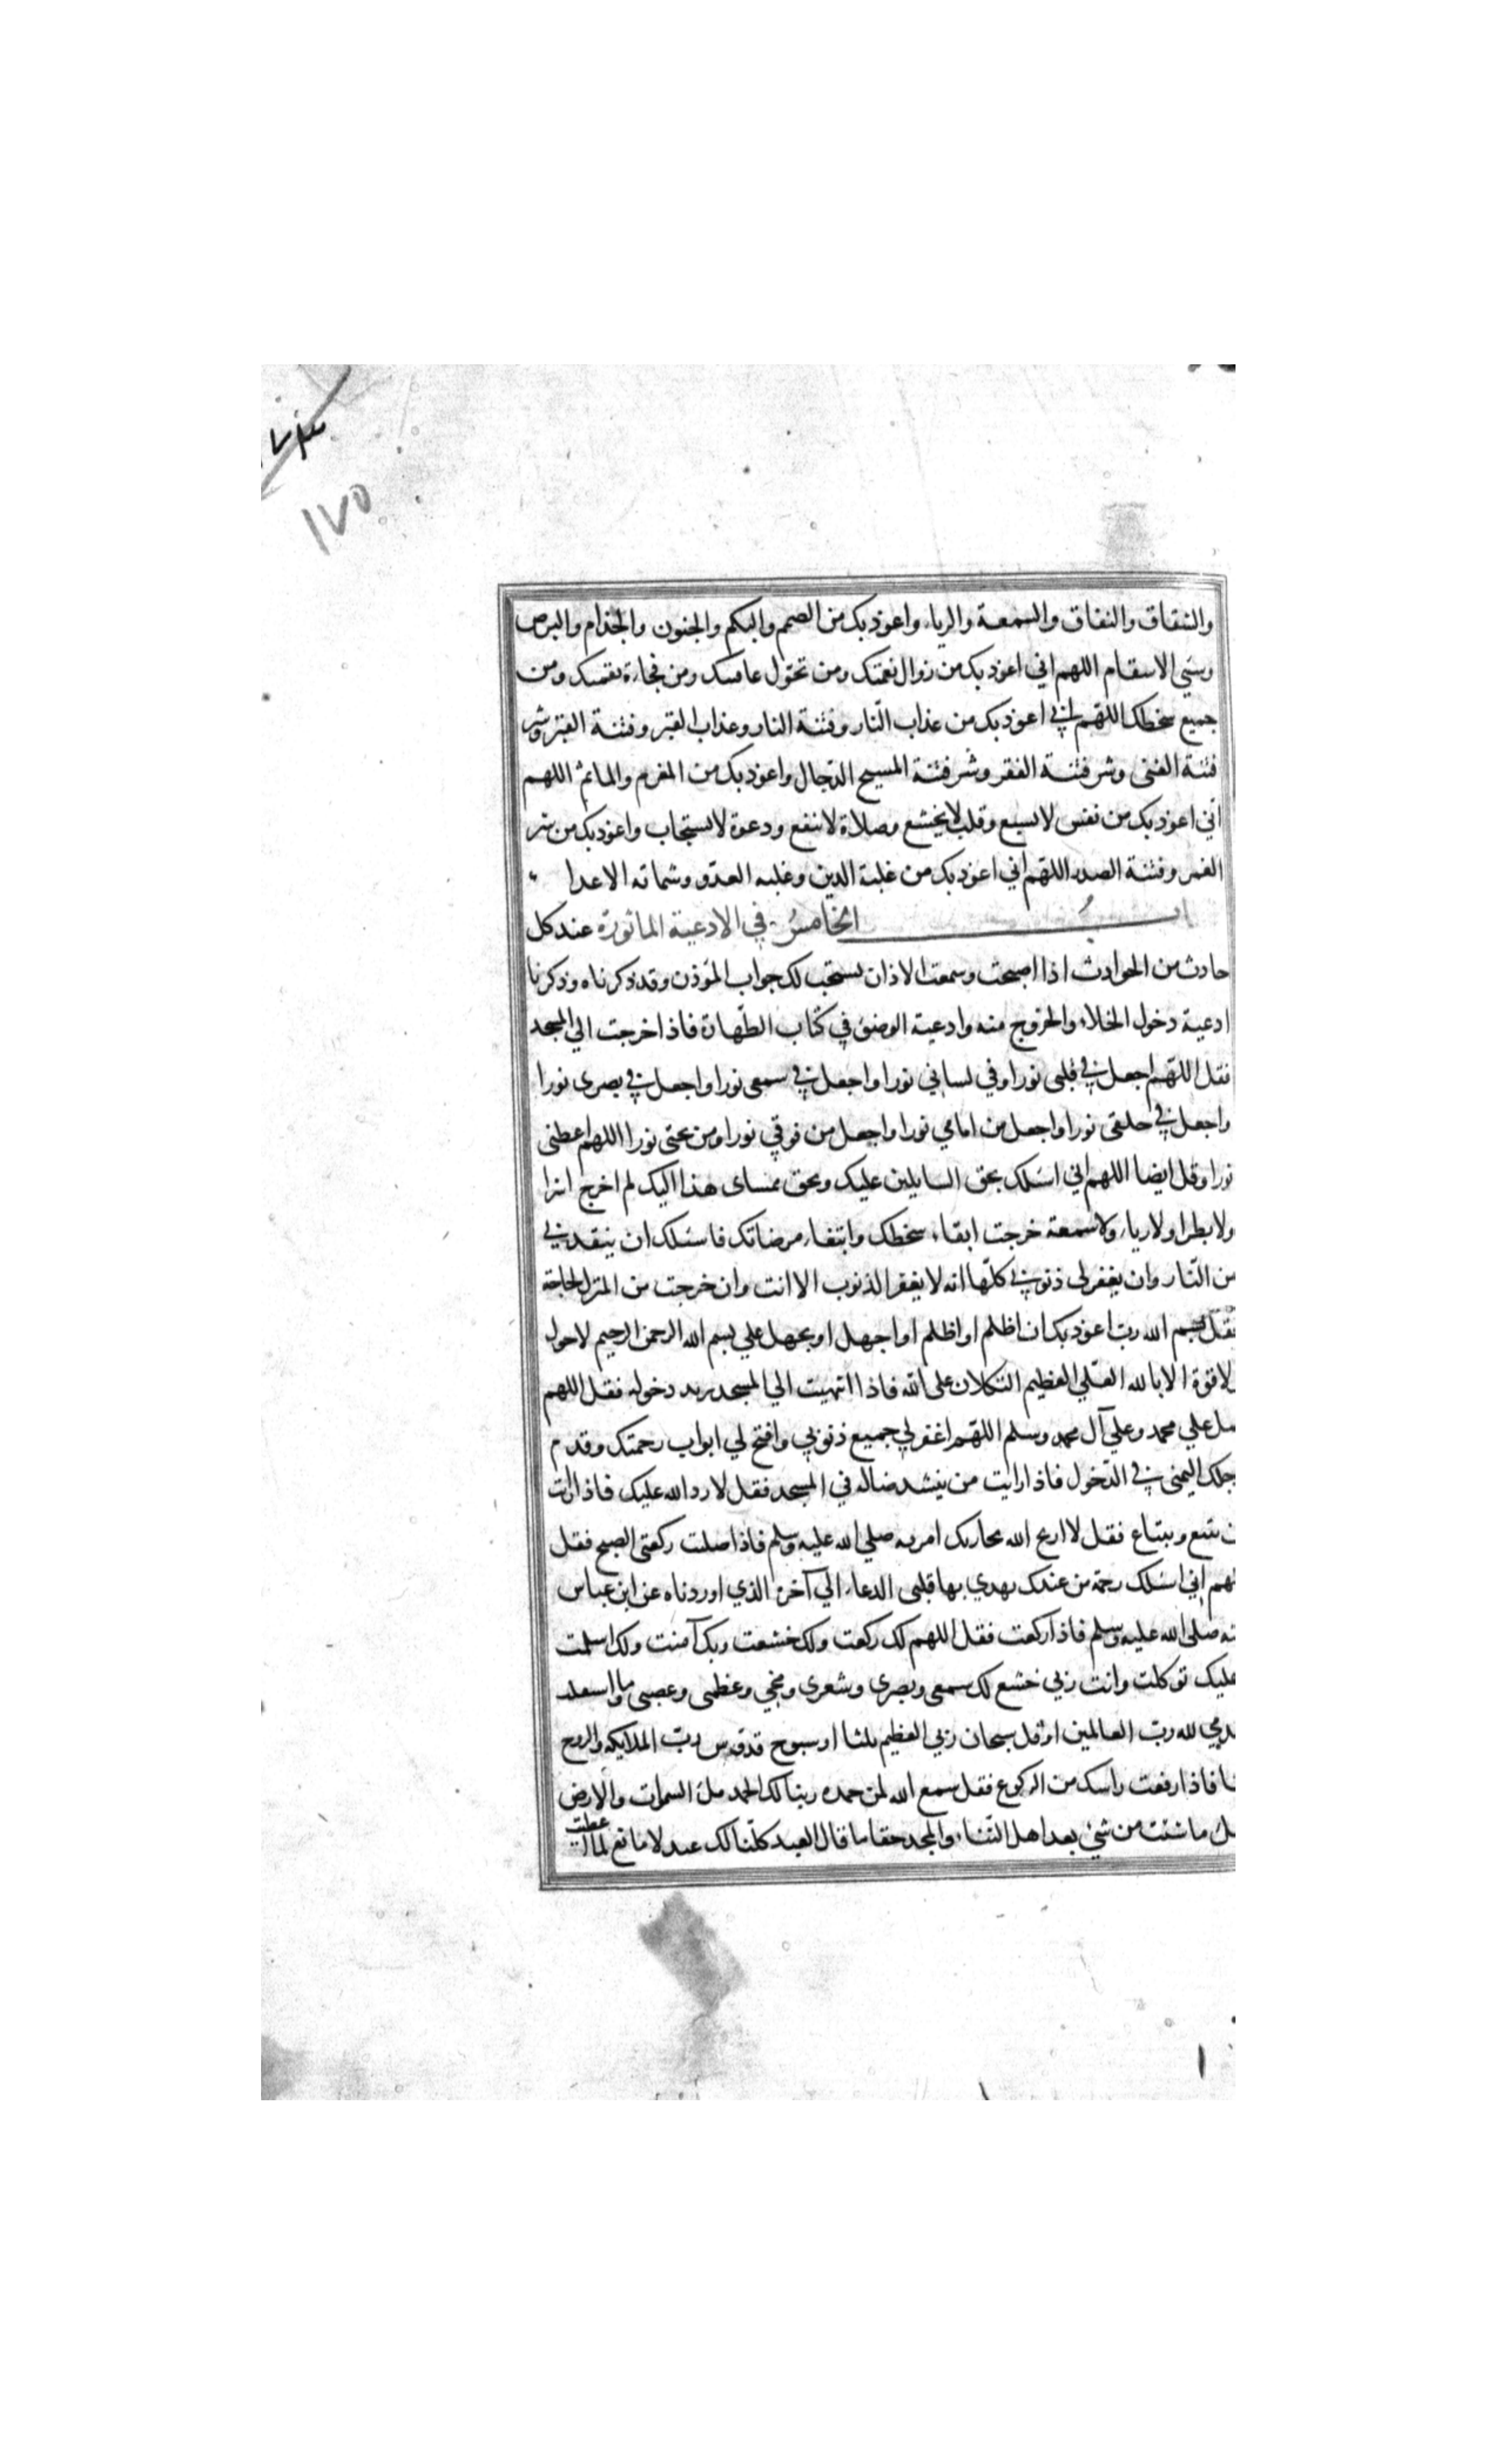 ١٧٥
والشقاق والنفاق والسمعة والرياء واعوذ بك من الصمم والبكم والجنون والجذام والبرص
وسئ الاسقام اللهم اني اعوذ بك من زوال نعمتك ومن تحول عافيتك ومن فجاءة نقمتك ومن
جميع سخطك اللهم اني اعوذ بك من عذاب النار وفتنة النار وعذاب القبر وفتنة القبر وشر
فتنة الغنى وشر فتنة الفقر وشر فتنة المسيح الدجال واعوذ بك من المغرم والماثم اللهم
اني اعوذ بك من نفس لا تشبع وقلب لا يخشع وصلاة لا تنفع ودعوة لا تستجاب واعوذ بك من شر
العمر وفتنة الصدر اللهم اني اعوذ بك من غلبة الدين وغلبه العدو وشماته الاعدا
الباب الخامس في الادعية الماثورة عند كل
حادث من الحوادث اذا اصبحت وسمعت الاذان يستحب لك جواب المؤذن وقد ذكرناه وذكرنا
ادعية دخول الخلاء والخروج منه وادعية الوضؤ في كتاب الطهارة فاذا خرجت الي المسجد
فقل اللهم اجعل في قلبى نورا وفي لساني نورا واجعل في سمعى نورا واجعل في بصرى نورا
واجعل في خلفى نورا واجعل من امامي نورا واجعل من فوقي نورا ومن تحتى نورا اللهم اعطنى
نورا وقل ايضا اللهم اني اسئلك بحق السايلين عليك وبحق ممشاى هذا اليك لم اخرج اشرا
ولا بطرا ولا رياء ولا سمعة خرجت اتقاء سخطك وابتغاء مرضاتك فاسئلك ان ينقذني
من النار وان يغفر لى ذنوبي كلها انه لا يغفر الذنوب الا انت وان خرجت من المنزل لحاجة
فقل بسم الله رب اعوذ بك ان اظلم او اظلم او اجهل او يجهل علي بسم الله الرحمن الرحيم لا حول
لا قوة الا بالله العلي العظيم التكلان على الله فاذا انتهيت الي المسجد يريد دخوله فقل اللهم
صل علي محمد وعلي آل محمد وسلم اللهم اغفر لي جميع ذنوبي وافتح لي ابواب رحمتك وقدم
جلك اليمنى في الدخول فاذا رايت من ينشد ضاله في المسجد فقل لا رد الله عليك فاذا رايت
ن يبيع ويبتاع فقل لا اربح الله تجارتك امر به صلي الله عليه وسلم فاذا صليت ركعتى الصبح فقل
لهم اني اسئلك رحمة من عندك يهدي بها قلبى الدعاء الي آخره الذي اوردناه عن ابن عباس
نه صلى الله عليه وسلم فاذا ركعت فقل اللهم لك ركعت ولك خشعت وبك آمنت ولك اسلمت
عليك توكلت وانت ربي خشع لك سمعى وبصرى وشعرى ومخي وعظمى وعصبى وما استقلت
قدمي لله رب العالمين او قل سبحان ربي العظيم ثلثا او سبوح قدوس رب الملايكه والروح
فاذا رفعت راسك من الركوع فقل سمع الله لمن حمده ربنا لك الحمد ملء السموات والارض
ملء ما شئت من شئ بعد اهل الثناء والمجد حقا ما قال العبد كلنا لك عبد لا مانع لما اعطيت